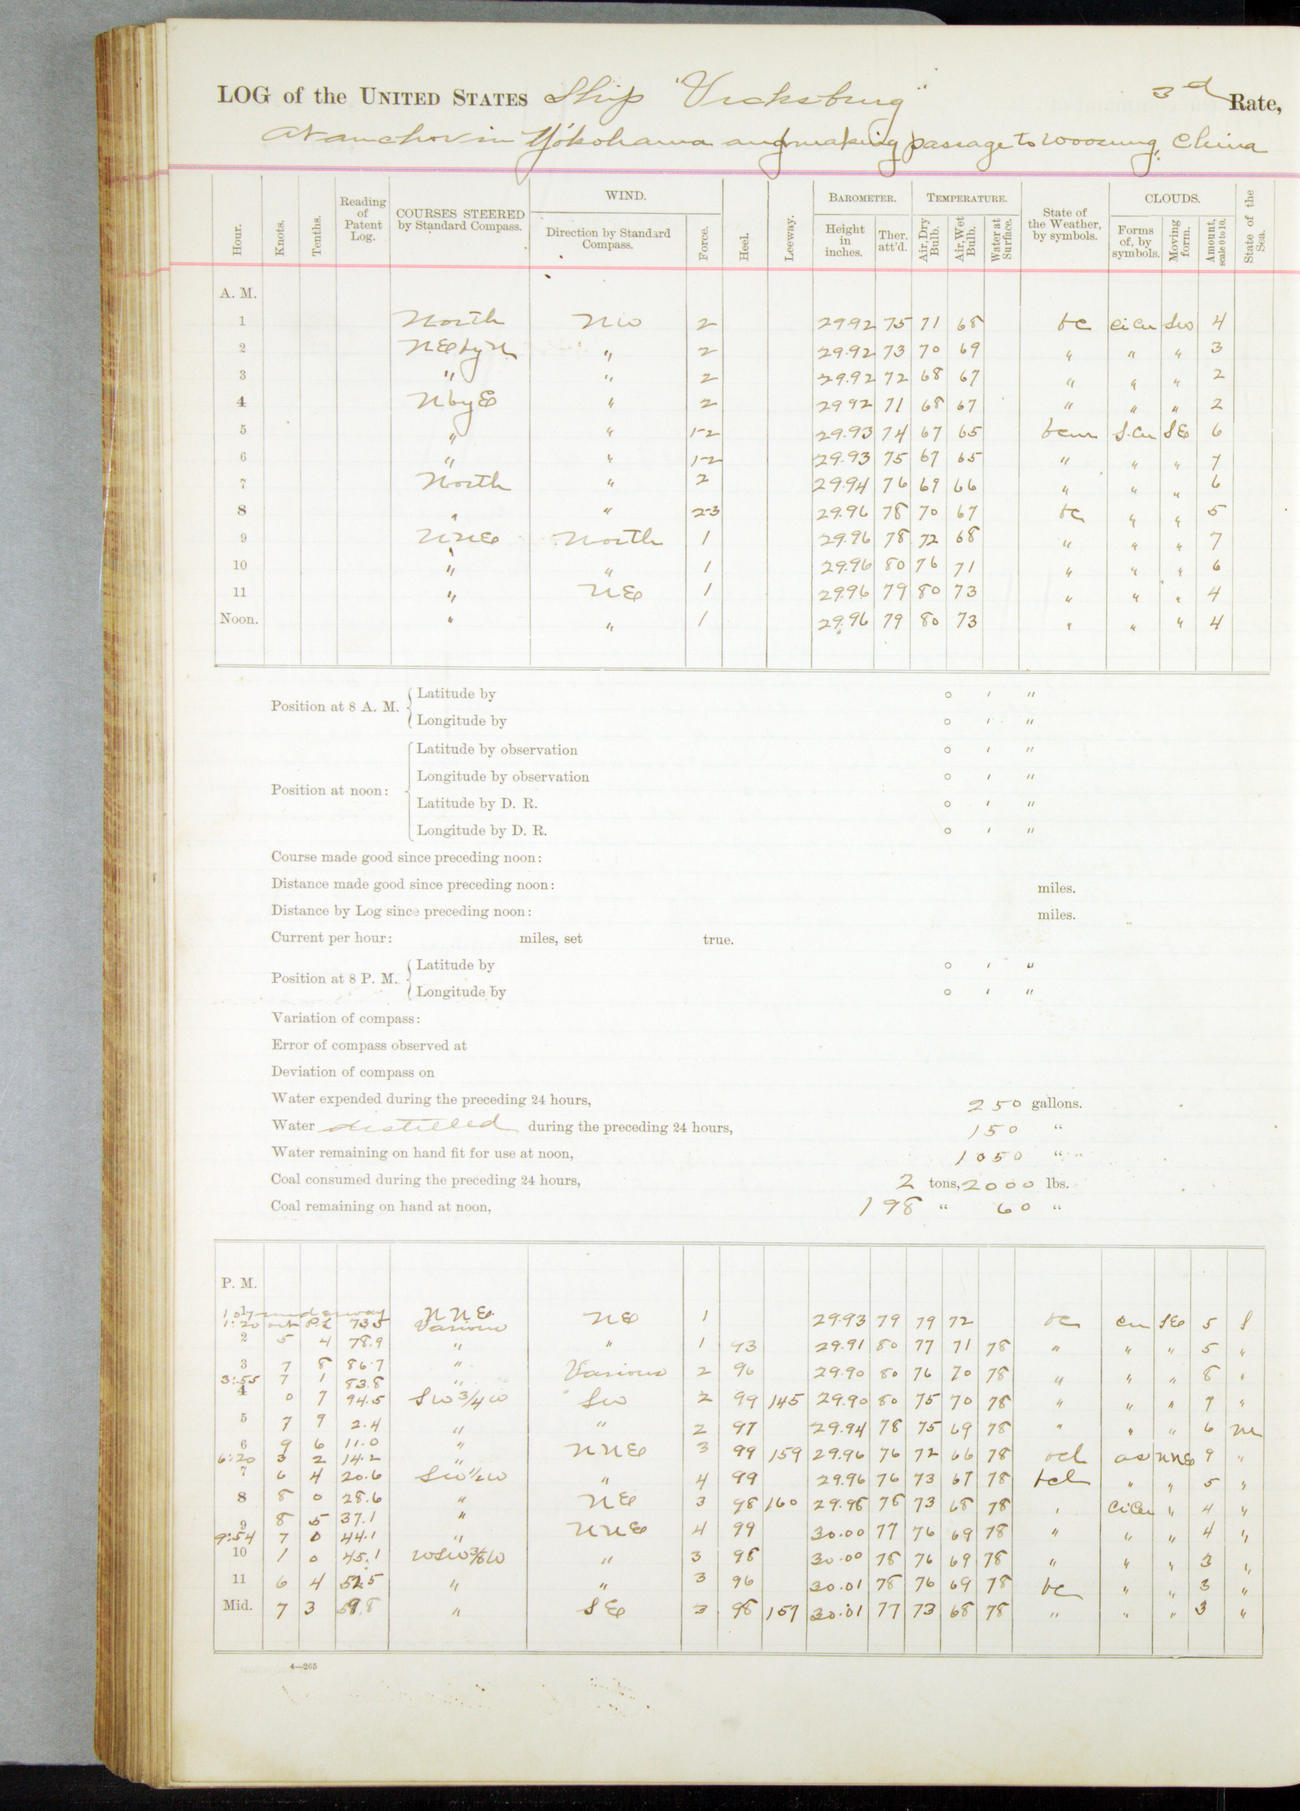 LOG of the UNITED STATES Ship "Vicksburg" 3rd Rate,
At anchor in Yokohama and making passage to Woosung, China
Hour. Knots. Tenths. Reading of Patent Log. COURSES STEERED by Standard Compass. WIND. Direction by Standard Compass. Force. Heel. Leeway. BAROMETER. Height in inches. Ther. att'd. TEMPERATURE. Air, Dry Bulb. Air, Wet Bulb. Water at Surface. State of the Weather, by symbols. CLOUDS. Forms of, by symbols. Moving form. Amount, scale 0 to 10. State of the Sea.
A. M.
1 North NW 2 29.92 75 71 68 bc Ci Cu SW 4
2 NE by N " 2 29.92 73 70 69 " " " 3
3 " " 2 29.92 72 68 67 " " " 2
4 N by E " 2 29 92 71 68 67 " " " 2
5 " " 1-2 29.93 74 67 65 bcm S.Cu SE 6
6 " " 1-2 29.93 75 67 65 " " " 7
7 North " 2 29.94 76 69 66 " " " 6
8 " " 2-3 29.96 78 70 67 bc " " 5
9 NNE North 1 29.96 78 72 68 " " " 7
10 " " 1 29.96 80 76 71 " " " 6
11 " NE 1 29.96 79 80 73 " " " 4
Noon. " " 1 29.96 79 80 73 " " " 4
Position at 8 A. M. Latitude by ° ′ ″
Longitude by ° ′ ″
Latitude by observation ° ′ ″
Longitude by observation ° ′ ″
Position at noon:
Latitude by D. R. ° ′ ″
Longitude by D. R. ° ′ ″
Course made good since preceding noon:
Distance made good since preceding noon: miles.
Distance by Log since preceding noon: miles.
Current per hour: miles, set true.
Position at 8 P. M. Latitude by ° ′ ″
Longitude by ° ′ ″
Variation of compass:
Error of compass observed at
Deviation of compass on
Water expended during the preceding 24 hours, 250 gallons.
Water distilled during the preceding 24 hours, 150 "
Water remaining on hand fit for use at noon, 1050 "
Coal consumed during the preceding 24 hours, 2 tons, 2000 lbs.
Coal remaining on hand at noon, 198 " 60 "
P. M.
1 1:07 underway NNE NE 1 29.93 79 79 72 bc Cu SE 5 S
1:20 out PL 73.5 Various
2 5 4 78.9 " " 1 93 29.91 80 77 71 78 " " " 5 "
3 7 8 86.7 " Various 2 96 29.90 80 76 70 78 " " " 8 "
3:55 7 1 83.8 "
4 0 7 94.5 SW 3/4 W SW 2 99 145 29.90 80 75 70 78 " " " 7 "
5 7 9 2.4 " " 2 97 29.94 78 75 69 78 " " " 6 M
6 9 6 11.0 " NNE 3 99 159 29.96 76 72 66 78 ocl as NNE 9 "
6:20 3 2 14.2 "
7 6 4 20.6 SW 1/2 W " 4 99 29.96 76 73 67 78 bcl " " 5 "
8 8 0 28.6 " NE 3 98 160 29.98 78 73 68 78 " Ci Cu " 4 "
9 8 5 37.1 " NNE 4 99 30.00 77 76 69 78 " " " 4 "
9:54 7 0 44.1 "
10 1 0 45.1 WSW 3/8 W " 3 98 30.00 78 76 69 78 " " " 3 "
11 6 4 52.5 " " 3 96 30.01 78 76 69 78 bc " " 3 "
Mid. 7 3 59.8 " SE 3 98 157 30.01 77 73 68 78 " " " 3 "
4—265